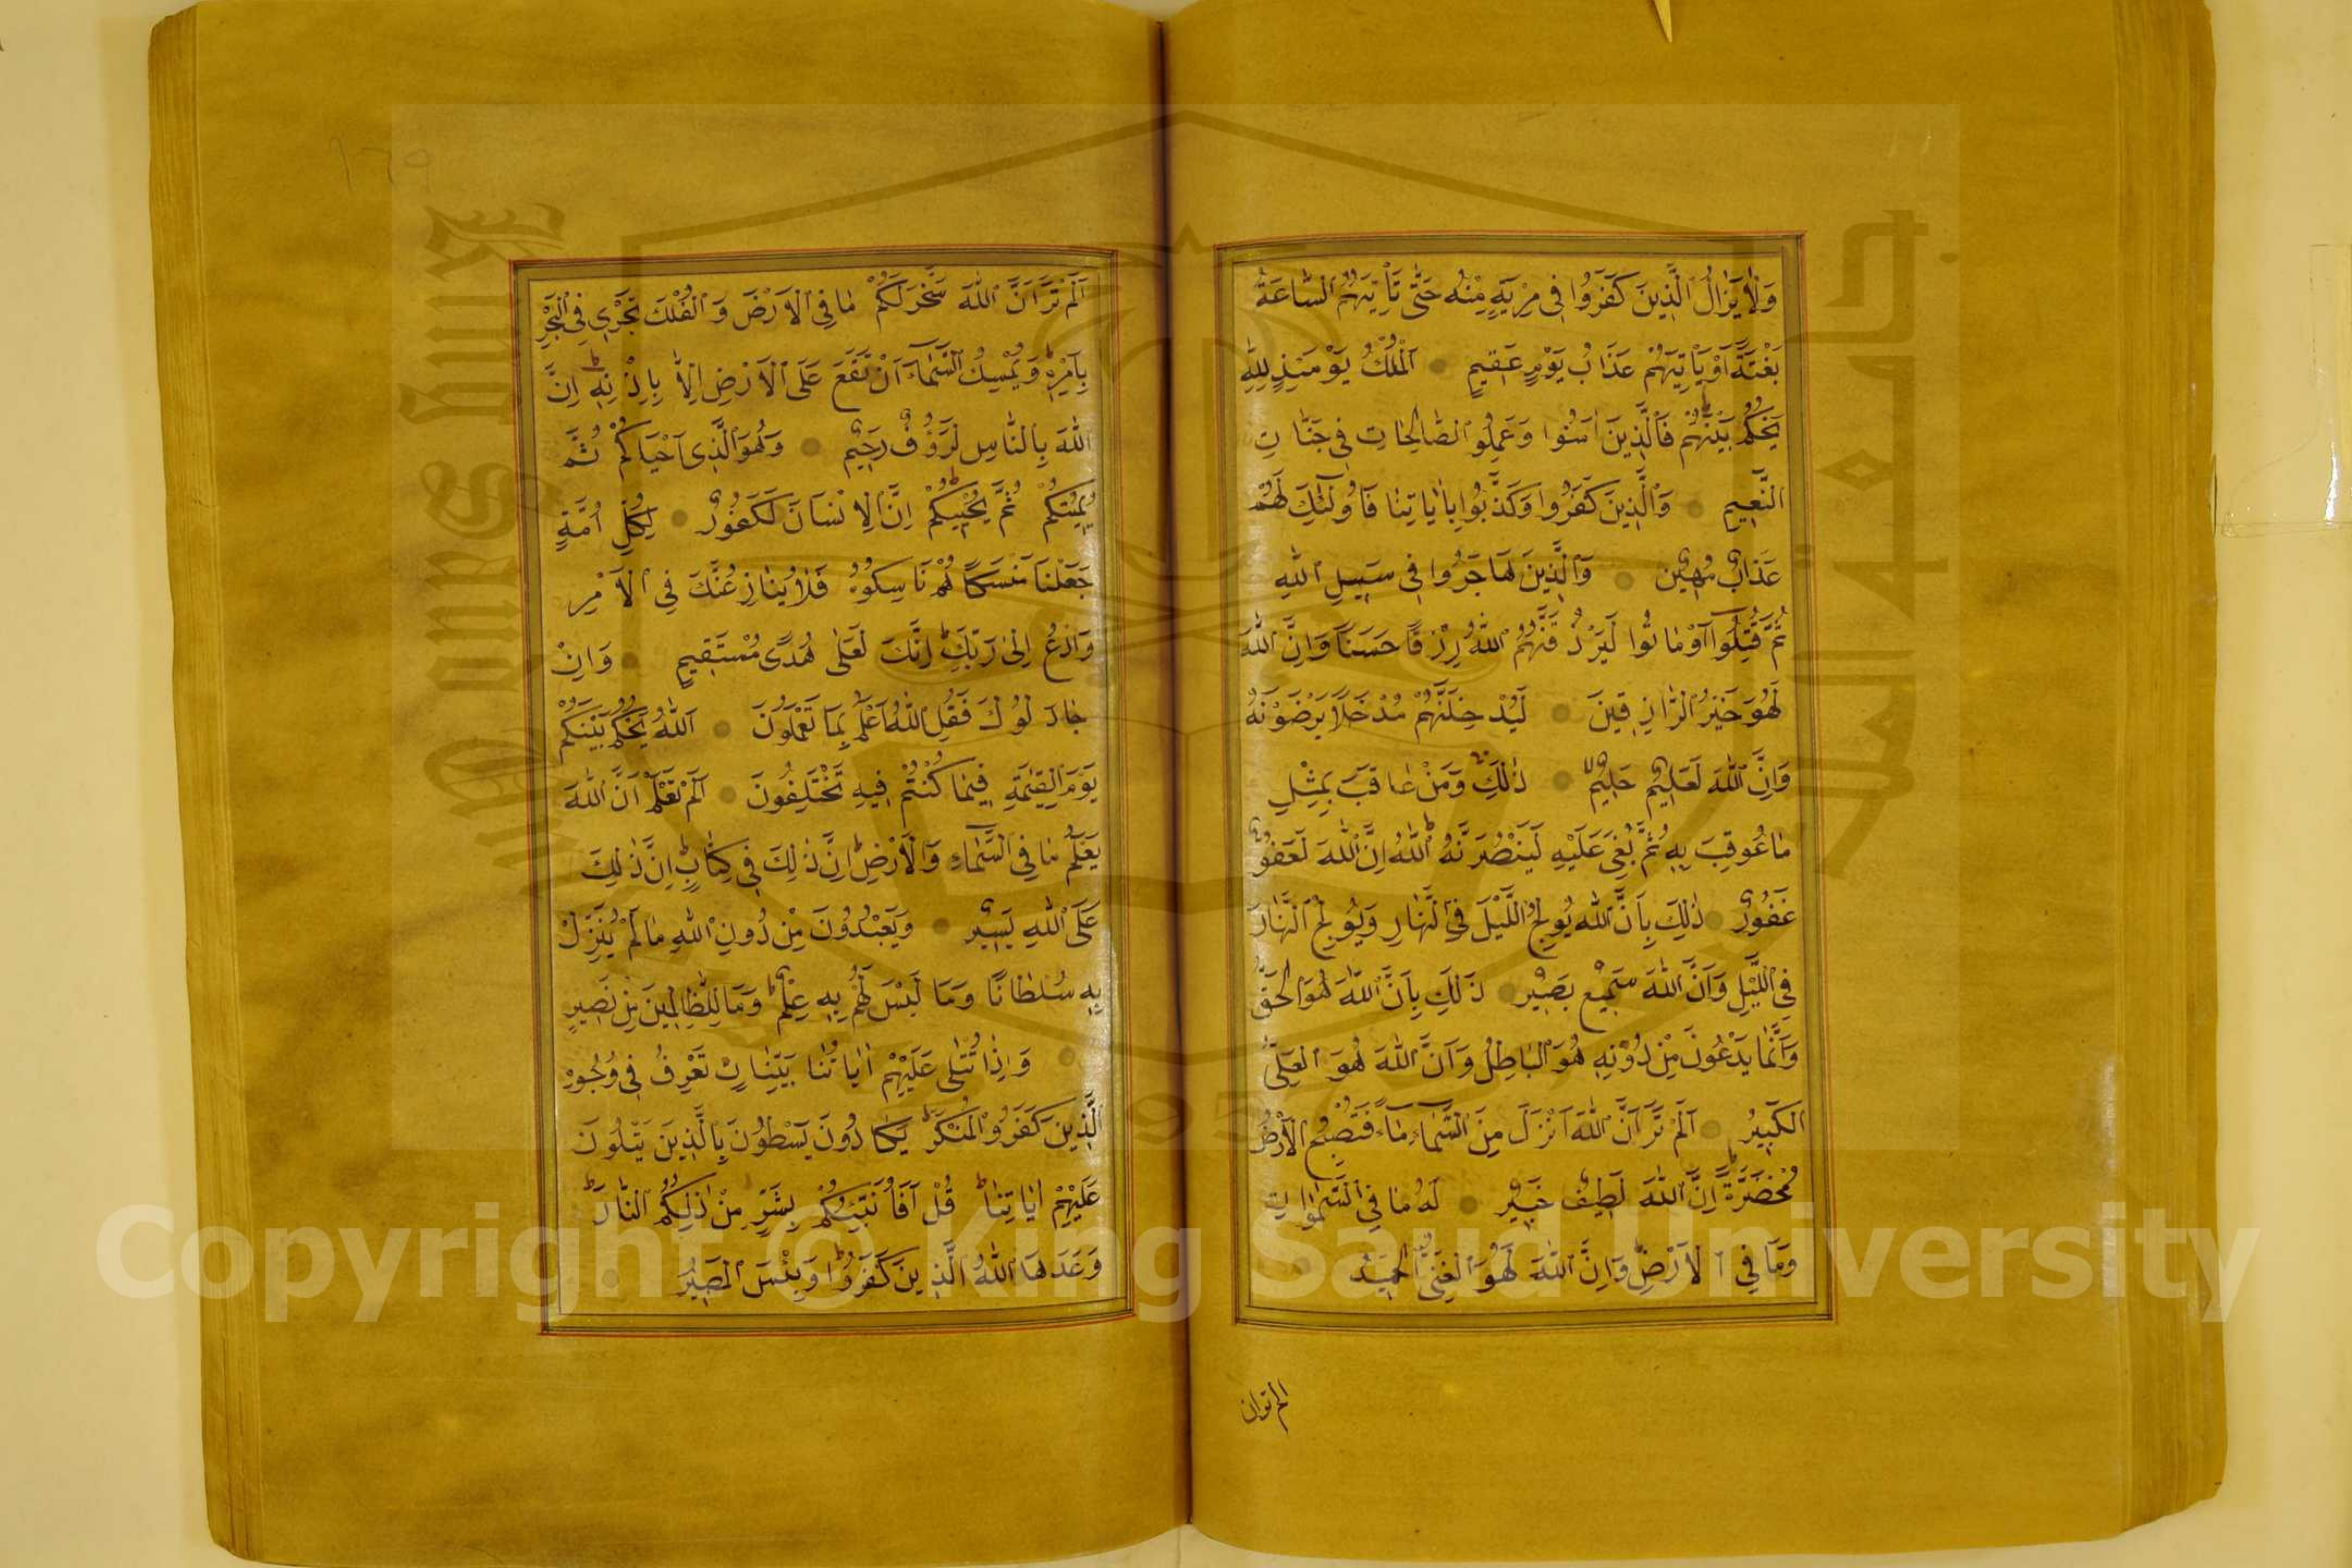 وَلَا يَزَالُ الَّذِينَ كَفَرُوا فِى مِرْيَةٍ مِنْهُ حَتَّى تَأْتِيَهُمُ السَّاعَةُ
بَغْتَةً أَوْ يَأْتِيَهُمْ عَذَابُ يَوْمٍ عَقِيمٍ الْمُلْكُ يَوْمَئِذٍ لِلَّهِ
يَحْكُمُ بَيْنَهُمْ فَالَّذِينَ اٰمَنُوا وَعَمِلُوا الصَّالِحَاتِ فِى جَنَّاتِ
النَّعِيمِ وَالَّذِينَ كَفَرُوا وَكَذَّبُوا بِاٰيَاتِنَا فَأُولٰئِكَ لَهُمْ
عَذَابٌ مُهِينٌ وَالَّذِينَ هَاجَرُوا فِى سَبِيلِ اللّٰهِ
ثُمَّ قُتِلُوٓا أَوْ مَاتُوا لَيَرْزُقَنَّهُمُ اللّٰهُ رِزْقًا حَسَنًا وَإِنَّ اللّٰهَ
لَهُوَ خَيْرُ الرَّازِقِينَ لَيُدْخِلَنَّهُمْ مُدْخَلًا يَرْضَوْنَهُ
وَإِنَّ اللّٰهَ لَعَلِيمٌ حَلِيمٌ ذٰلِكَ وَمَنْ عَاقَبَ بِمِثْلِ
مَا عُوقِبَ بِهِ ثُمَّ بُغِىَ عَلَيْهِ لَيَنْصُرَنَّهُ اللّٰهُ إِنَّ اللّٰهَ لَعَفُوٌّ
غَفُورٌ ذٰلِكَ بِأَنَّ اللّٰهَ يُولِجُ اللَّيْلَ فِى النَّهَارِ وَيُولِجُ النَّهَارَ
فِى اللَّيْلِ وَأَنَّ اللّٰهَ سَمِيعٌ بَصِيرٌ ذٰلِكَ بِأَنَّ اللّٰهَ هُوَ الْحَقُّ
وَأَنَّمَا يَدْعُونَ مِنْ دُونِهِ هُوَ الْبَاطِلُ وَأَنَّ اللّٰهَ هُوَ الْعَلِىُّ
الْكَبِيرُ أَلَمْ تَرَ أَنَّ اللّٰهَ أَنْزَلَ مِنَ السَّمَآءِ مَآءً فَتُصْبِحُ الْأَرْضُ
مُخْضَرَّةً إِنَّ اللّٰهَ لَطِيفٌ خَبِيرٌ لَهُ مَا فِى السَّمٰوَاتِ
وَمَا فِى الْأَرْضِ وَإِنَّ اللّٰهَ لَهُوَ الْغَنِىُّ الْحَمِيدُ
الم تر ان
١٦٩
أَلَمْ تَرَ أَنَّ اللّٰهَ سَخَّرَ لَكُمْ مَا فِى الْأَرْضِ وَالْفُلْكَ تَجْرِى فِى الْبَحْرِ
بِأَمْرِهِ وَيُمْسِكُ السَّمَآءَ أَنْ تَقَعَ عَلَى الْأَرْضِ إِلَّا بِإِذْنِهِ إِنَّ
اللّٰهَ بِالنَّاسِ لَرَؤُفٌ رَحِيمٌ وَهُوَ الَّذِىٓ أَحْيَاكُمْ ثُمَّ
يُمِيتُكُمْ ثُمَّ يُحْيِيكُمْ إِنَّ الْإِنْسَانَ لَكَفُورٌ لِكُلِّ أُمَّةٍ
جَعَلْنَا مَنْسَكًا هُمْ نَاسِكُوهُ فَلَا يُنَازِعُنَّكَ فِى الْأَمْرِ
وَادْعُ إِلٰى رَبِّكَ إِنَّكَ لَعَلٰى هُدًى مُسْتَقِيمٍ وَإِنْ
جَادَلُوكَ فَقُلِ اللّٰهُ أَعْلَمُ بِمَا تَعْمَلُونَ اللّٰهُ يَحْكُمُ بَيْنَكُمْ
يَوْمَ الْقِيٰمَةِ فِيمَا كُنْتُمْ فِيهِ تَخْتَلِفُونَ أَلَمْ تَعْلَمْ أَنَّ اللّٰهَ
يَعْلَمُ مَا فِى السَّمَآءِ وَالْأَرْضِ إِنَّ ذٰلِكَ فِى كِتَابٍ إِنَّ ذٰلِكَ
عَلَى اللّٰهِ يَسِيرٌ وَيَعْبُدُونَ مِنْ دُونِ اللّٰهِ مَا لَمْ يُنَزِّلْ
بِهِ سُلْطَانًا وَمَا لَيْسَ لَهُمْ بِهِ عِلْمٌ وَمَا لِلظَّالِمِينَ مِنْ نَصِيرٍ
وَإِذَا تُتْلٰى عَلَيْهِمْ اٰيَاتُنَا بَيِّنَاتٍ تَعْرِفُ فِى وُجُوهِ
الَّذِينَ كَفَرُوا الْمُنْكَرَ يَكَادُونَ يَسْطُونَ بِالَّذِينَ يَتْلُونَ
عَلَيْهِمْ اٰيَاتِنَا قُلْ أَفَأُنَبِّئُكُمْ بِشَرٍّ مِنْ ذٰلِكُمُ النَّارُ
وَعَدَهَا اللّٰهُ الَّذِينَ كَفَرُوا وَبِئْسَ الْمَصِيرُ
Copyright © King Saud University
King Saud University
جامعة الملك سعود
1957